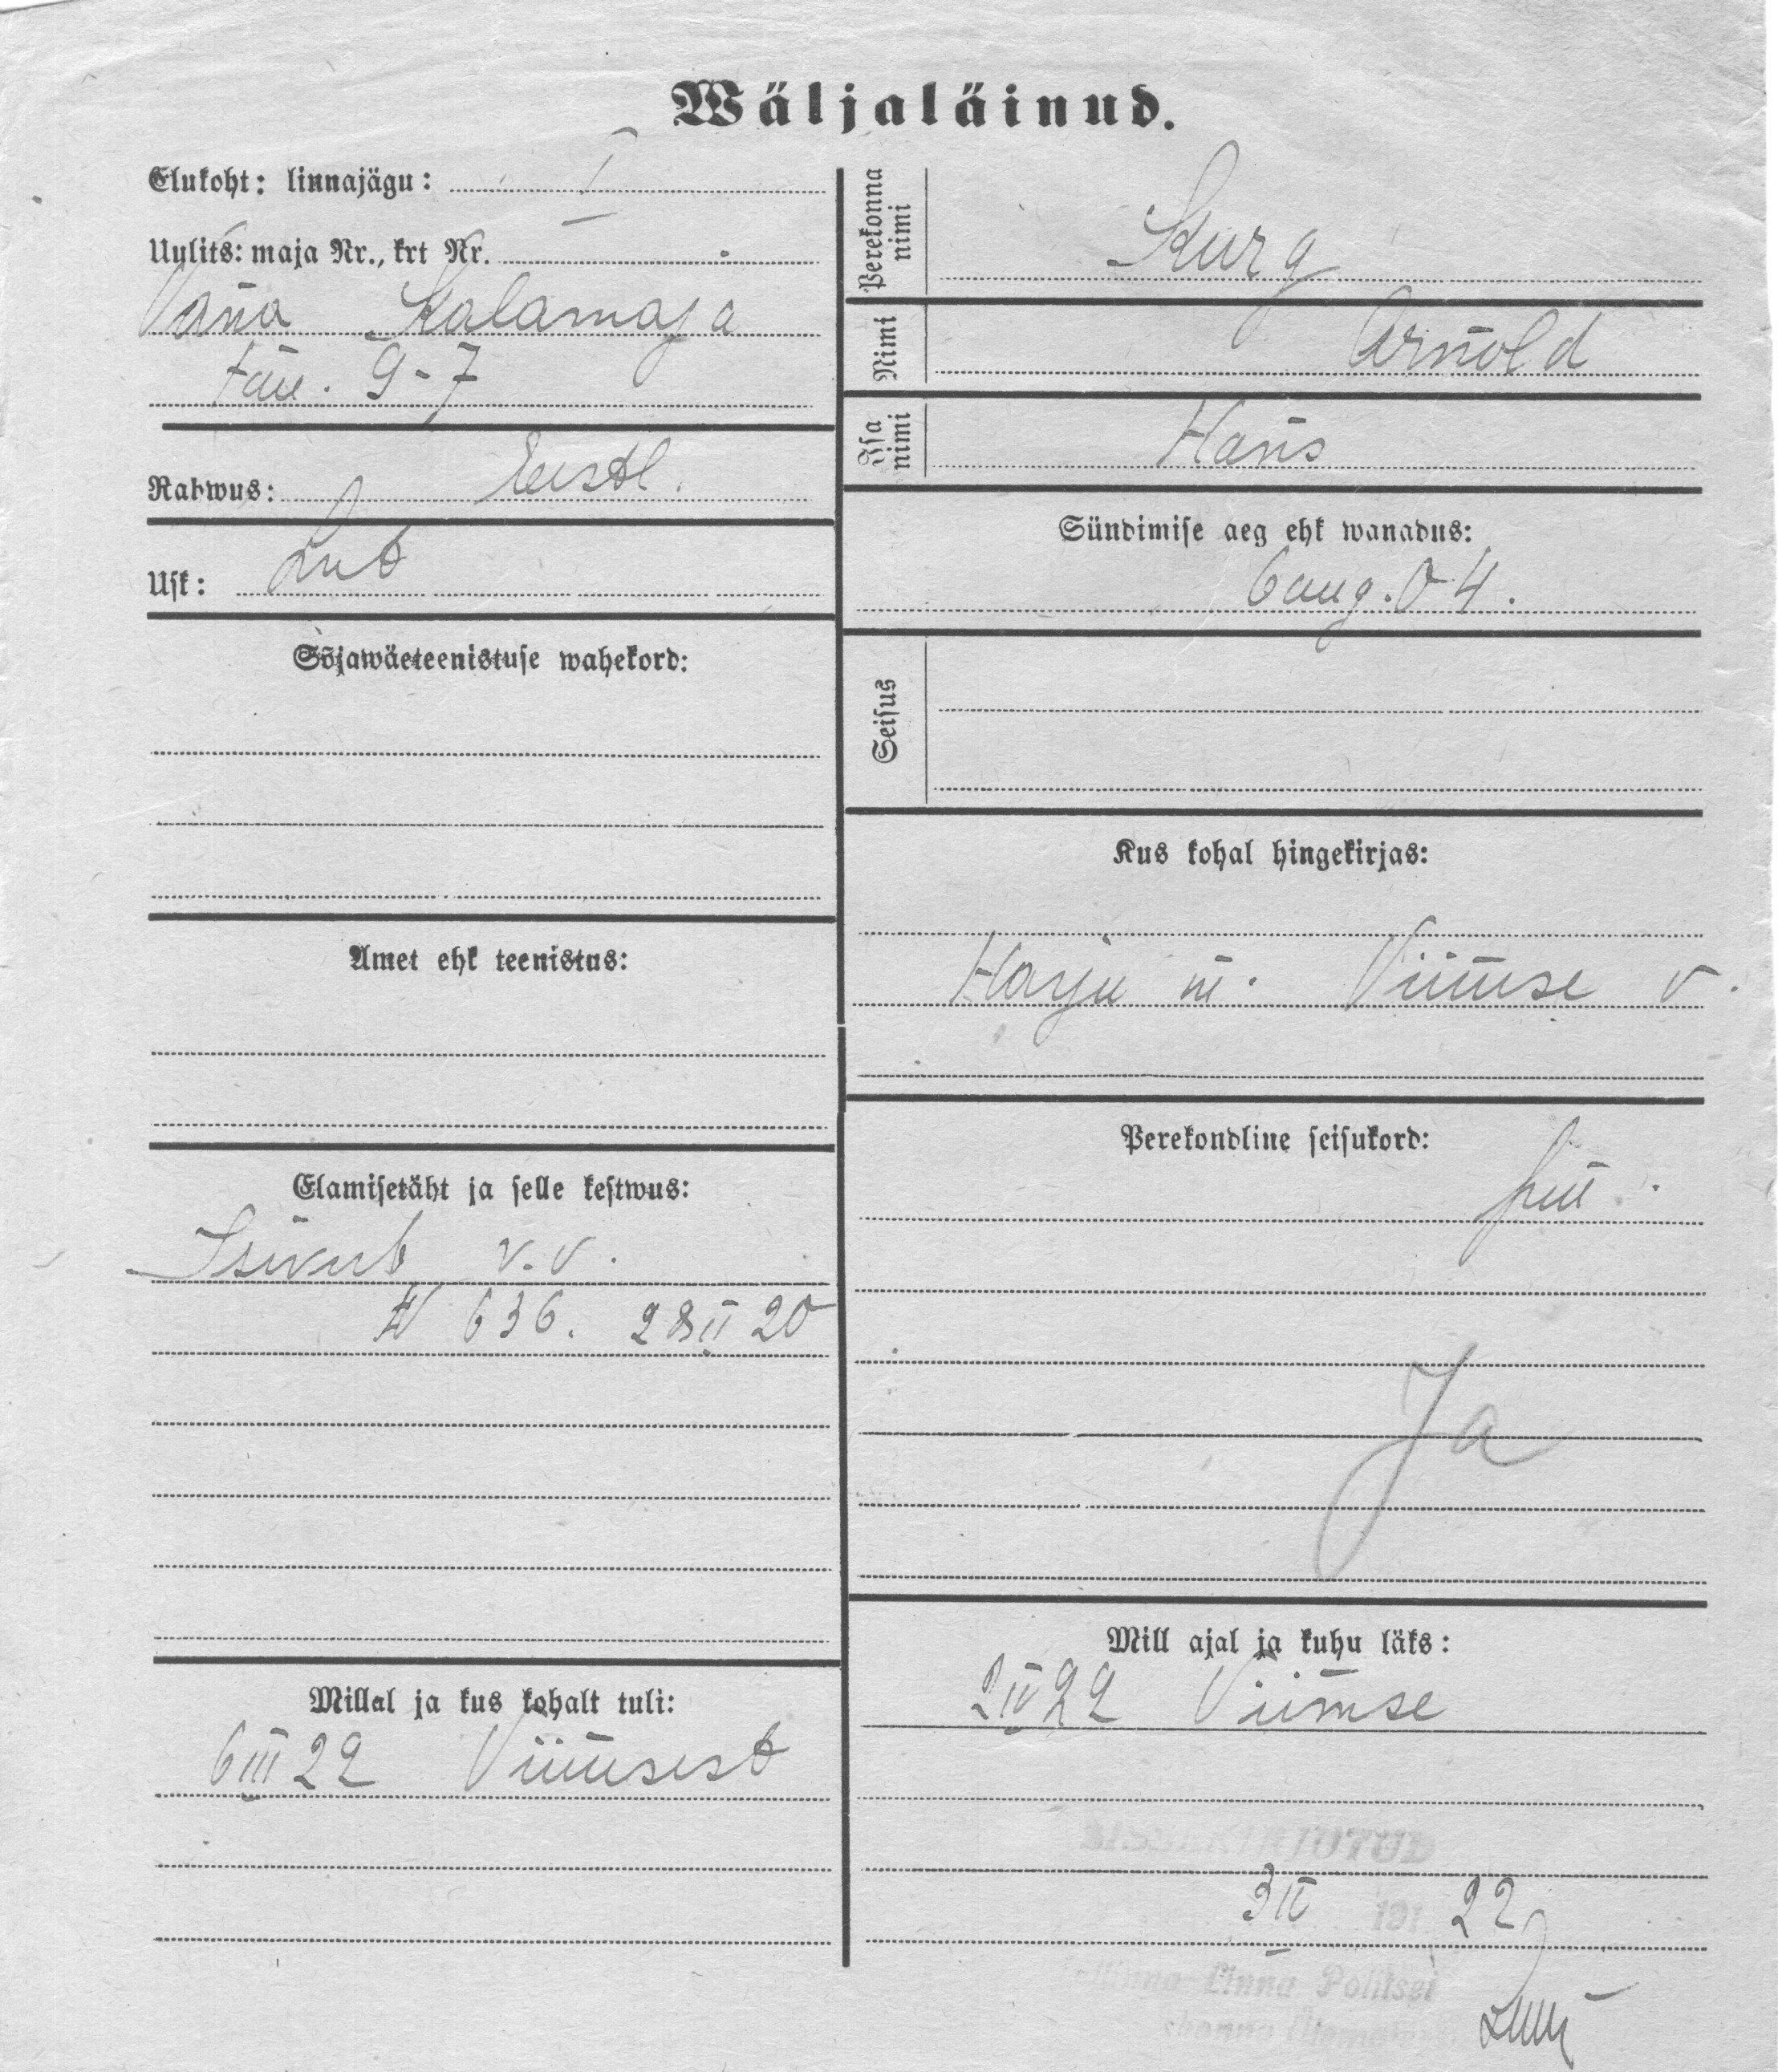 Wäljaläinud.
Elukoht: linnajägu: I
Uulits: maja Nr., krt Nr.
Vana Kalamaja
tän. 9-7
Rahwus: Eestl.
Usk: Lut
Sõjawäeteenistuse wahekord:
Amet ehk teenistus:
Elamisetäht ja selle kestwus:
Isikut v.v.
N 636. 28 II 20
Millal ja kus kohalt tuli:
6 III 22 Viimsist
Perekonna nimi Kurg
Nimi Arnold
Isa nimi Hans
Sündimise aeg ehk wanadus:
6 aug. 04.
Seisus
Kus kohal hingekirjas:
Harju m. Viimse v.
Perekondline seisukord:
Ja
Mill ajal ja kuhu läks:
2 IV 22 Viimse
SISSEKIRJUTUD
3 IV 191 22
Tallinna Linna Politsei